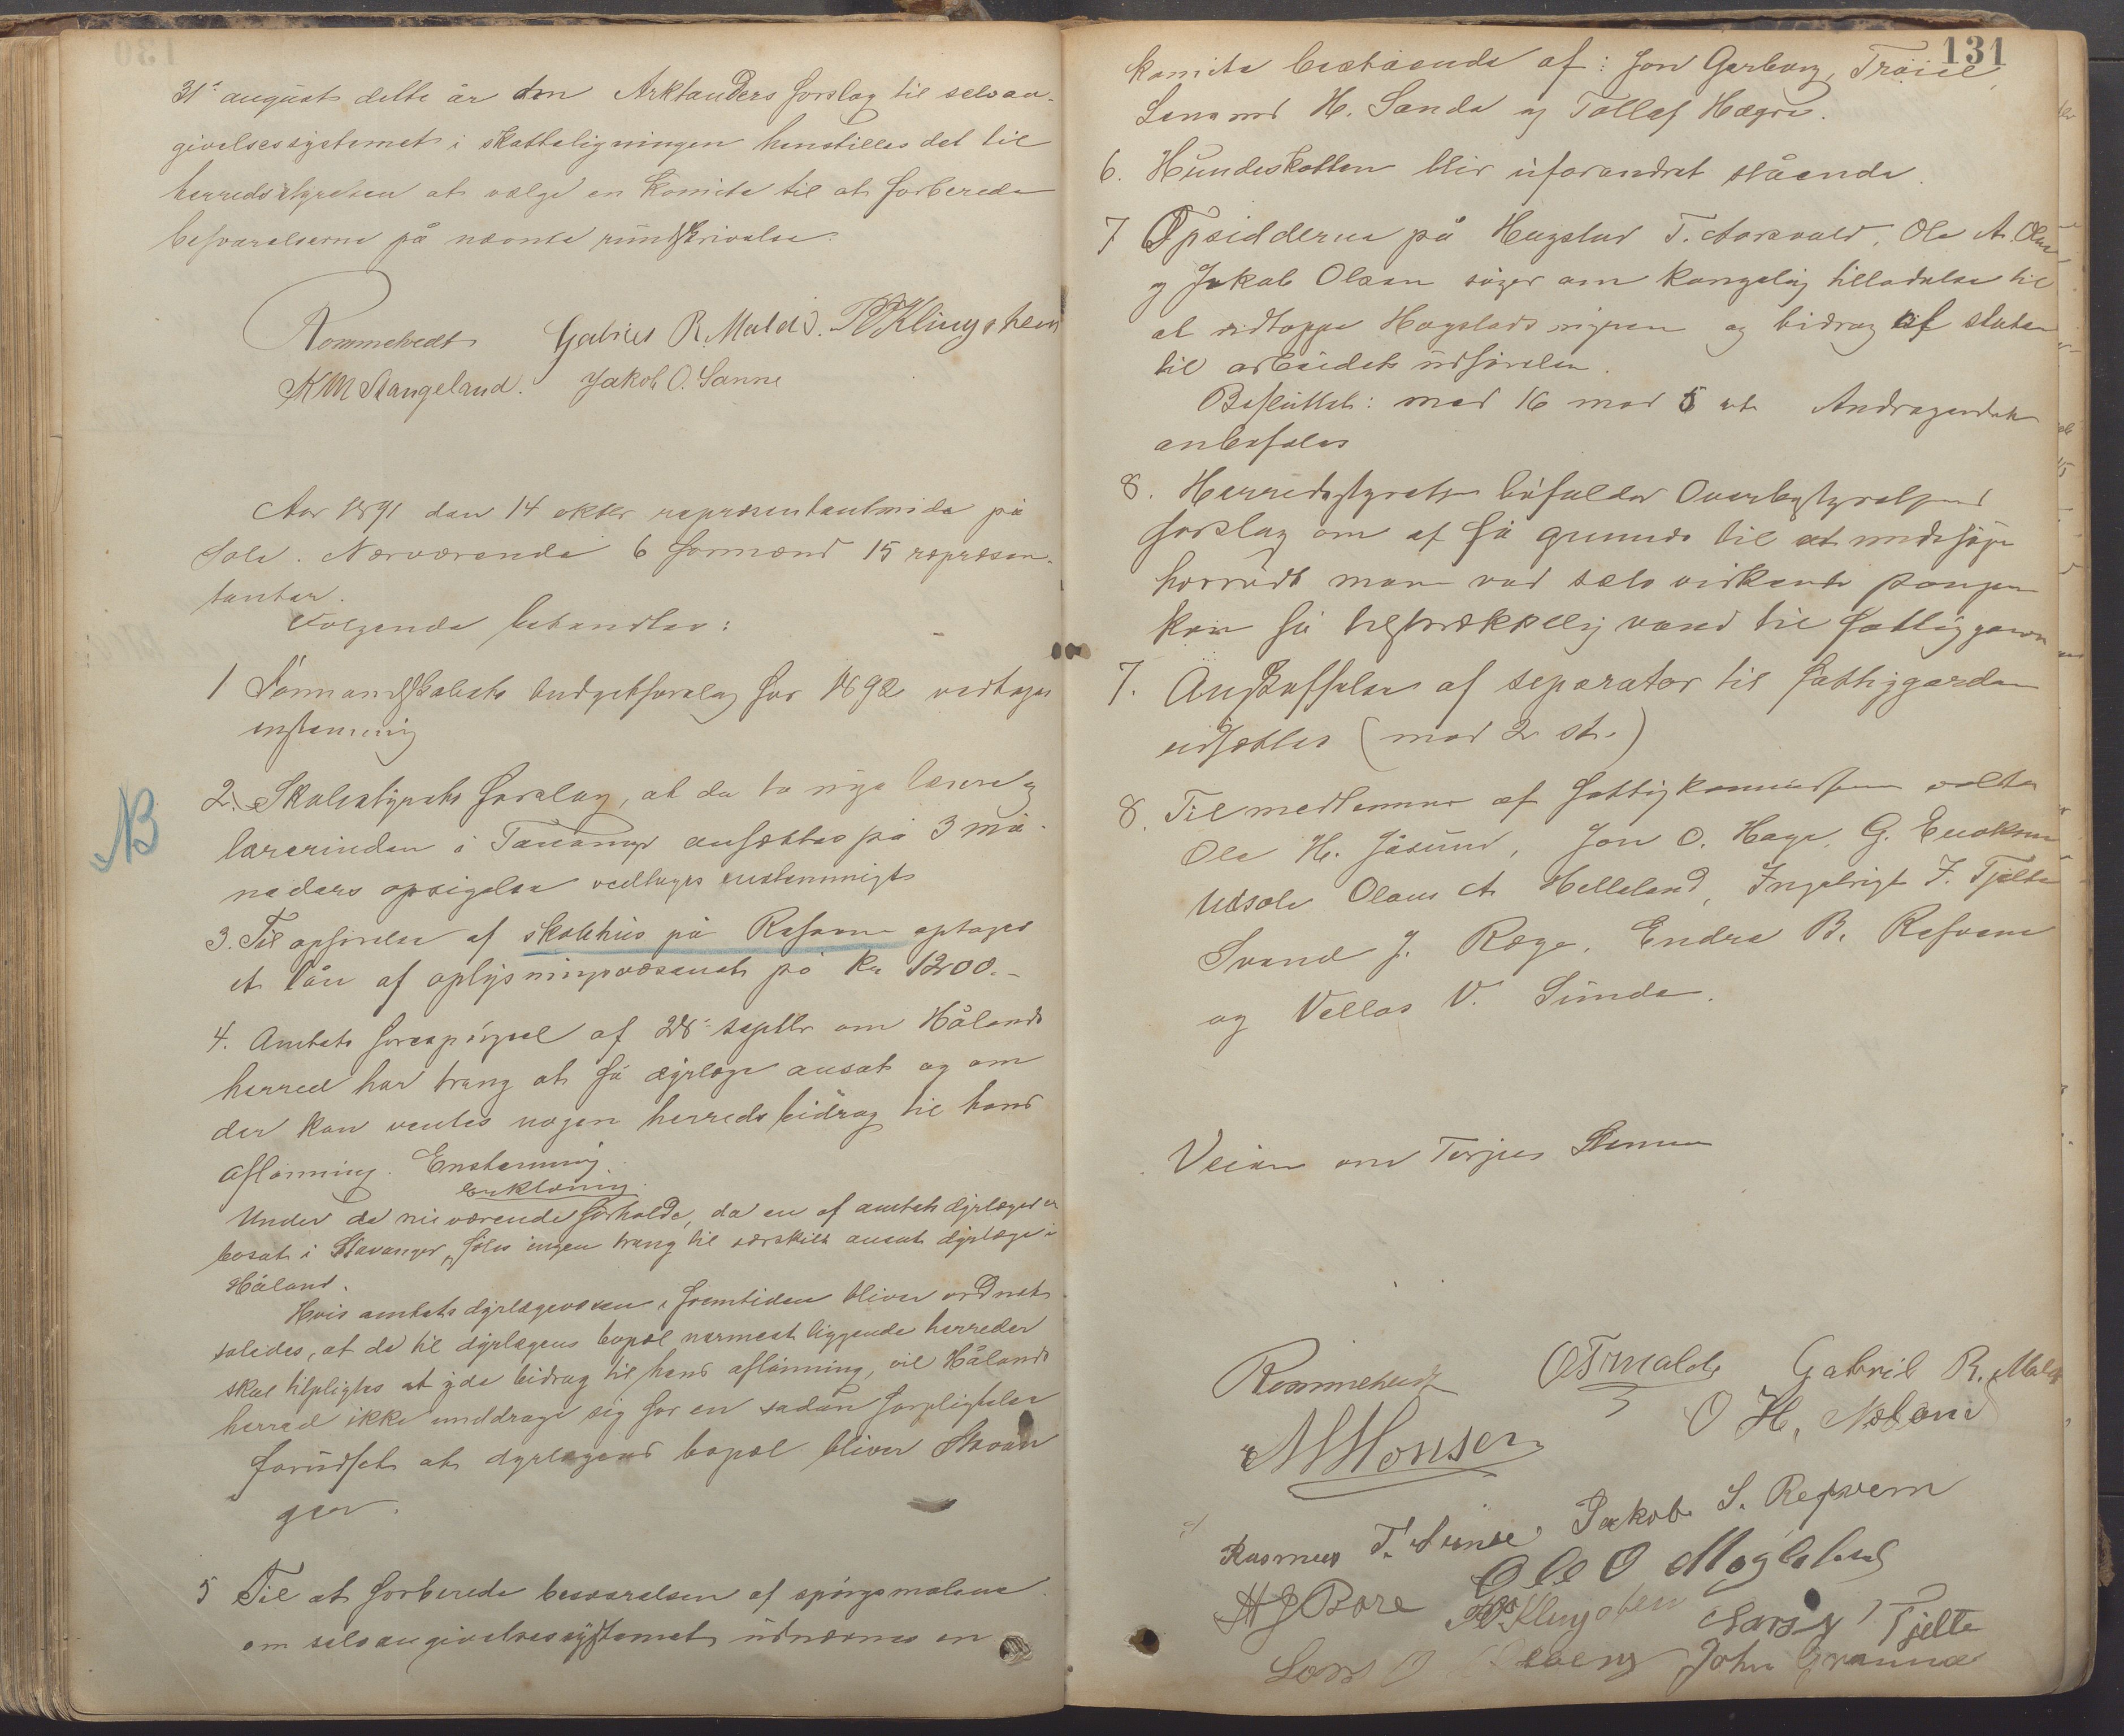 31te august dette år om Arktanders forslag til selvan-
givelsessystemet i skatteligningen henstilles det til
herredsstyrelsen at vælge en komite til at forberede
besvarelserne på nævnte rundskrivelse.
Rommetvedt Gabriel R. Malde. P Klingsheim
KM Stangeland. Jakob O. Sanne
Aar 1891 den 14 oktbr repræsentantmøde på
Sole. Nærværende 6 formænd 15 repræsen-
tanter.
Følgende behandles:
1 Formandskabets budgetforslag for 1892 vedtages
enstemmig
NB
2. Skolestyrets forslag, at de to nye lærere og
lærerinden i Tananger ansættes på 3 må-
neders opsigelse vedtages enstemmigt
3. Til opførelse af skolehus på Refsvem optages
et lån af oplysningsvæsenet på Kr 1200.-
4. Amtets forespørgsel af 28de septbr om Hålands
herred har trang at få dyrlæge ansat og om
der kan ventes nogen herredsbidrag til hans
aflønning. Enstemmig
erklæring.
Under de nuværende forholde, da en af amtets dyrlæger er
bosat i Stavanger, føles ingen trang til særskilt ansat dyrlæge i
Håland.
Hvis amtets dyrlægevæsen i fremtiden bliver ordnet
således, at de til dyrlægens bopæl nærmest liggende herreder
skal tilpligtes at yde bidrag til hans aflønning, vil Hålands
herred ikke unddrage sig for en sådan forpligtelse
forudsat at dyrlægens bopæl bliver Stavan
ger.
5 Til at forberede besvarelsen af spørgsmålene
om selvangivelsessystemet udnævnes en
131
komite bestående af: Jon Garborg, Træiel
Lensmand H. Sande og Tollef Hægre.
6. Hundeskatten blir uforandret stående.
7 Opsidderne på Hagstad T. Aarsvold, Ole A. Olsen
og Jakob Olsen søger om kongelig tilladelse til
at udtappe Hagstads myren og bidrag af staten
til arbeidets udførelse.
Besluttet: med 16 mod 5 st. Andragendet
anbefales
8. Herredsstyrelsen bifalder Overbestyrelsens
forslag om at få grunde til at undersøge
hvorvidt man ved selvvirkende pomper
kan få tilstrækkelig vand til fattiggården
7. Anskaffelse af separator til fattiggården
udsættes (mod 2 st.)
8. Til medlemmer af fattigkommissionen valgtes
Ole H. Jåsund, Jon O. Haga, G. Enoksen
Udsole Olaus A Helleland, Ingebrigt J. Tjelta
Svend J. Ræge, Endre B. Refsvem
og Vellas V. Sunde.
Veien om Torjus Stenen
Rommetvedt O T Malde Gabriel R. Malde
M Monsen O H, Næland
Rasmus T. Sunde Jakob S. Refsvem
H J Bore Ole O Meglelund
P Klingsheim Lars J Tjelta
Lars O John Grannæs